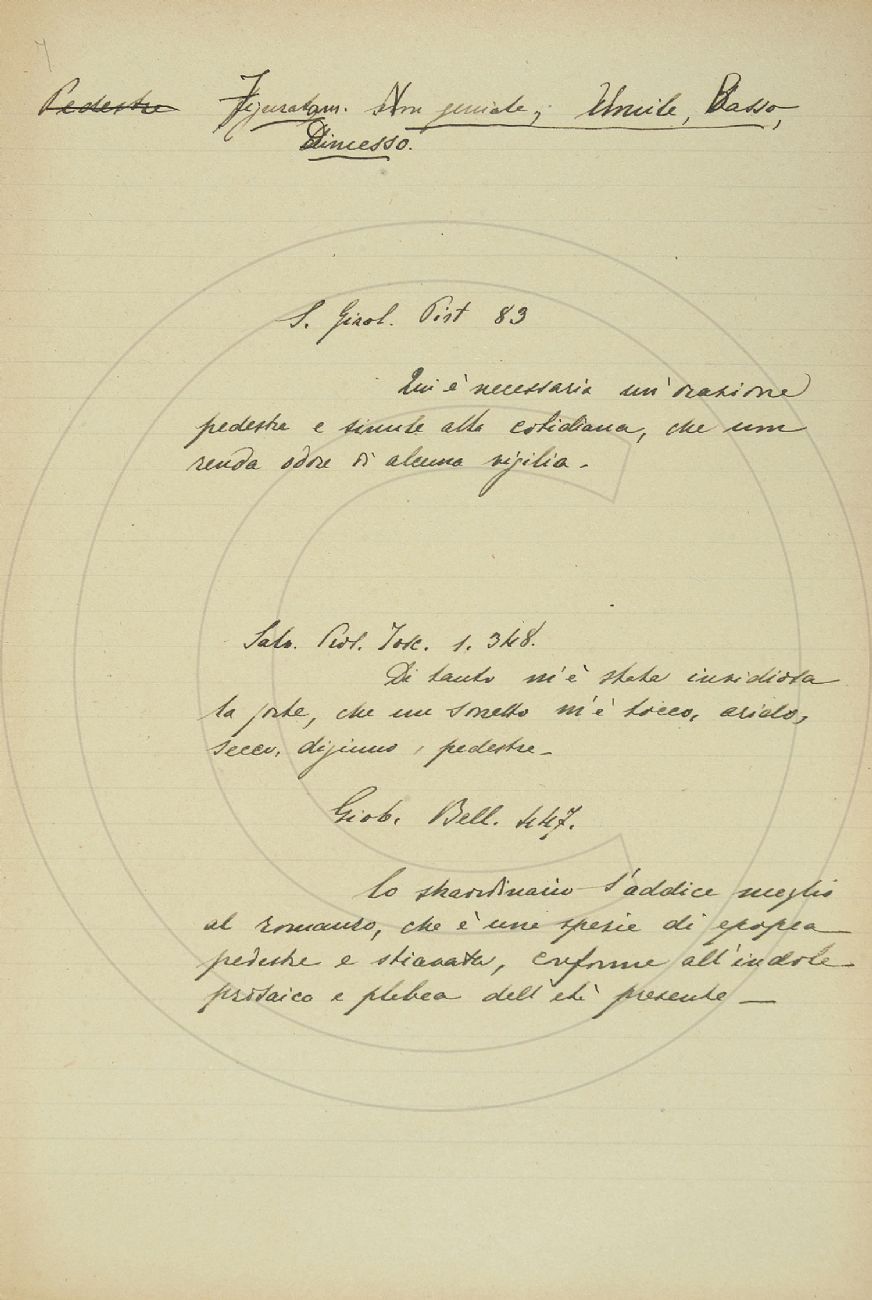 Pedestre Figuratam. Non geniale; Umile, Basso,
Dimesso.
S. Girol. Pist 83
Qui è necessaria un'orazione
pedestre e simile alla cotidiana, che non
renda odore di alcuna vigilia.
Salv. Pros. Tosc. 1. 348.
Di tanto m'è stata invidiosa
la sorte, che un sonetto m'è tocco, arido,
secco, digiuno, pedestre.
Giob. Bell. 447.
Lo straordinario s'addice meglio
al romanzo, che è una spezie di epopea
pedestre e stiavata, conforme all'indole
prosaica e plebea dell'età presente —